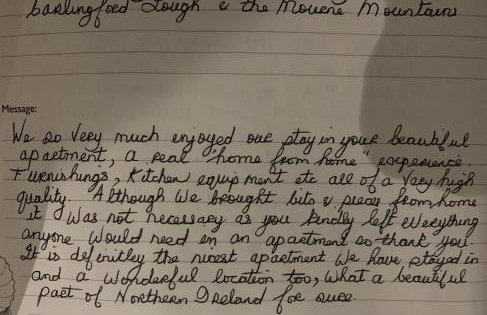 Carlingford Lough & the Mourne Mountains
Message:
We so very much enjoyed our stay in your beautiful
apartment, a real "home from home" experience.
Furnishings, Kitchen equipment etc all of a very high
quality. Although we brought bits & pieces from home
it was not necessary as you kindly left everything
anyone would need in an apartment so thank you.
It is definitley the nicest apartment we have stayed in
and a wonderful location too, what a beautiful
part of Northern Ireland for sure.